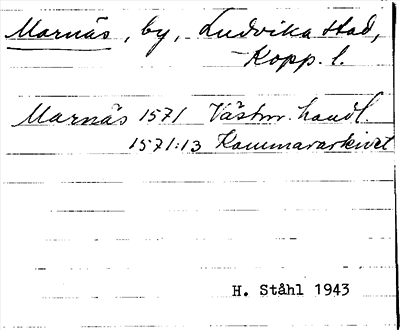 Marnäs, by, Ludvika stad,
Kopp. l.
Marnäs 1571 Västm. handl.
1571:13 Kammararkivet
H. Ståhl 1943